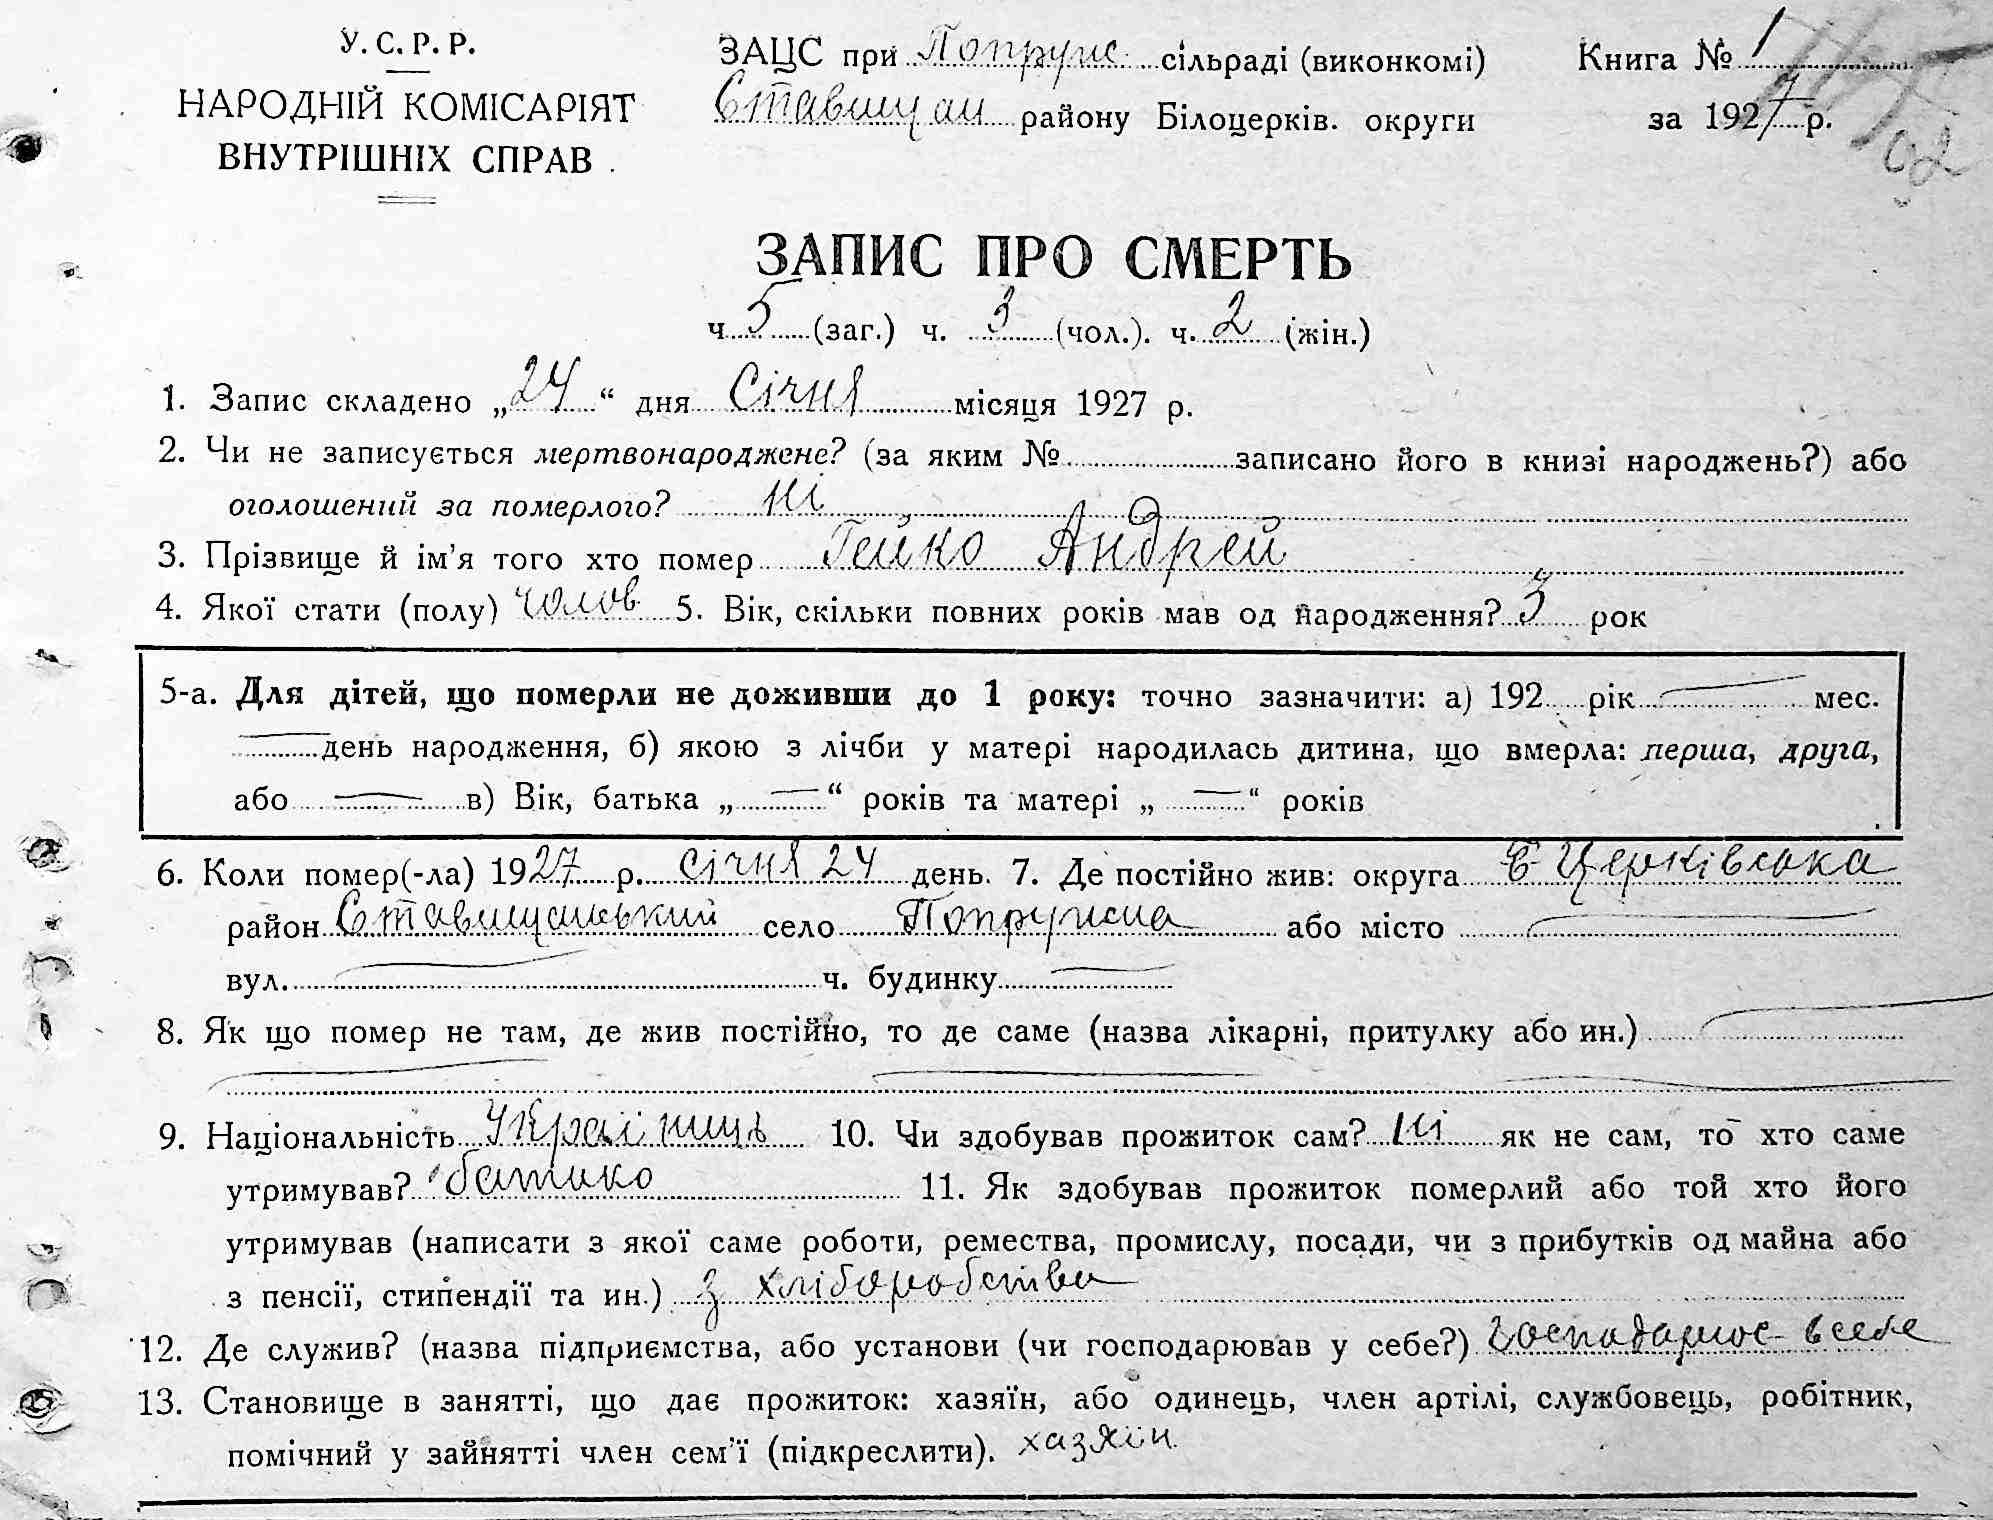 У. С. Р. Р.
НАРОДНІЙ КОМІСАРІЯТ
ВНУТРІШНІХ СПРАВ
ЗАЦС при Попруж. сільраді (виконкомі)
Ставищан району Білоцерків. округи
Книга № 1
за 1927 р.
92
ЗАПИС ПРО СМЕРТЬ
ч. 5 (заг.) ч. 3 (чол.). ч. 2 (жін.)
1. Запис складено „24“ дня Січня місяця 1927 р.
2. Чи не записується мертвонароджене? (за яким № записано його в книзі народжень?) або
оголошений за померлого? ні
3. Прізвище й ім’я того хто помер Гейко Андрей
4. Якої стати (полу) чолов 5. Вік, скільки повних років мав од народження? 3 рок
5-а. Для дітей, що померли не доживши до 1 року: точно зазначити: а) 192 рік — мес.
— день народження, б) якою з лічби у матері народилась дитина, що вмерла: перша, друга,
або — в) Вік, батька „—“ років та матері „—“ років
6. Коли помер(-ла) 1927 р. січня 24 день. 7. Де постійно жив: округа Б Церківська
район Ставищанський село Попружна або місто —
вул. — ч. будинку —
8. Як що помер не там, де жив постійно, то де саме (назва лікарні, притулку або ин.) —
9. Національність Україниць 10. Чи здобував прожиток сам? ні як не сам, то хто саме
утримував? батько 11. Як здобував прожиток померлий або той хто його
утримував (написати з якої саме роботи, ремества, промислу, посади, чи з прибутків од майна або
з пенсії, стипендії та ин.) з хліборобства
12. Де служив? (назва підприємства, або установи (чи господарював у себе?) господарює в себе
13. Становище в занятті, що дає прожиток: хазяїн, або одинець, член артілі, службовець, робітник,
помічний у зайнятті член сем’ї (підкреслити). хазяїн